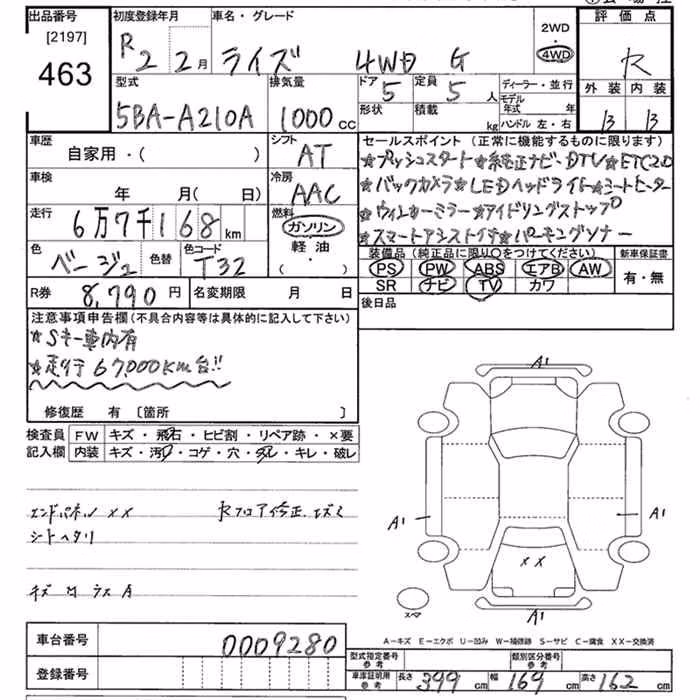 出品番号
[2197]
463
初度登録年月
R2 2月
車名・グレード
ライズ 4WD G
2WD
・
4WD
評価点
R
外装 内装
B B
型式
5BA-A210A
排気量
1000cc
ドア 5
定員 5人
形状
積載 kg
ディーラー・並行
モデル年式 年
ハンドル 左・右
車歴
自家用・( )
シフト
AT
車検
年 月(日)
冷房
AAC
走行
6万7千168km
燃料
ガソリン
軽油
( ・ )
色
ベージュ
色替
色コード
T32
R券 8,790円
名変期限 月 日
セールスポイント (正常に機能するものに限ります)
★プッシュスタート★純正ナビ・DTV★ETC2.0
★バックカメラ★LEDヘッドライト★シートヒーター
★ウィンカーミラー★アイドリングストップ
★スマートアシスト付★コーナーソナー
装備品(純正品に限り○をつけてください)
PS PW ABS エアB AW
SR ナビ TV カワ
新車保証書
有・無
後日品
注意事項申告欄(不具合内容等は具体的に記入して下さい)
★Sキー車内有
★走行67,000KM台!!
修復歴 有 [箇所 ]
検査員記入欄
FW キズ・飛石・ヒビ割・リペア跡・×要
内装 キズ・汚れ・コゲ・穴・スレ・キレ・破レ
エンドパネル XX
Rフロア修正
シートヘタリ
A1
A1
A1
XX
A1
A-キズ E-エクボ U-凹み W-補修跡 S-サビ C-腐食 XX-交換済
車台番号 0009280
登録番号
型式指定番号 参考
類別区分番号 参考
車庫証明用 参考
長さ 399cm
幅 169cm
高さ 162cm